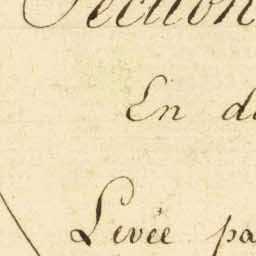 Section
En d
Levée pa